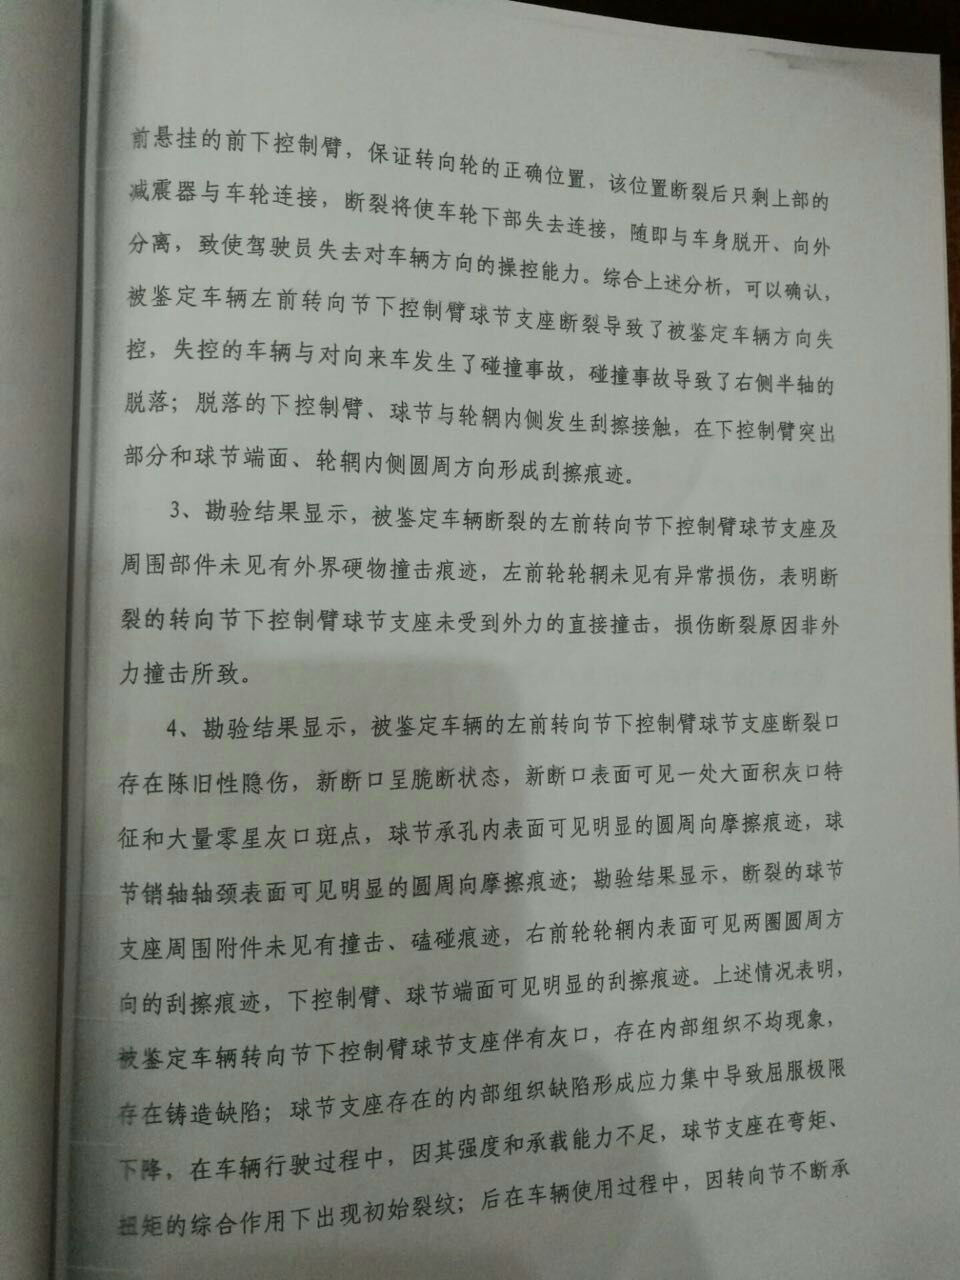 前悬挂的前下控制臂，保证转向轮的正确位置，该位置断裂后只剩上部的
减震器与车轮连接，断裂将使车轮下部失去连接，随即与车身脱开、向外
分离，致使驾驶员失去对车辆方向的操控能力。综合上述分析，可以确认，
被鉴定车辆左前转向节下控制臂球节支座断裂导致了被鉴定车辆方向失
控，失控的车辆与对向来车发生了碰撞事故，碰撞事故导致了右侧半轴的
脱落；脱落的下控制臂、球节与轮辋内侧发生刮擦接触，在下控制臂突出
部分和球节端面、轮辋内侧圆周方向形成刮擦痕迹。
3、勘验结果显示，被鉴定车辆断裂的左前转向节下控制臂球节支座及
周围部件未见有外界硬物撞击痕迹，左前轮轮辋未见有异常损伤，表明断
裂的转向节下控制臂球节支座未受到外力的直接撞击，损伤断裂原因非外
力撞击所致。
4、勘验结果显示，被鉴定车辆的左前转向节下控制臂球节支座断裂口
存在陈旧性隐伤，新断口呈脆断状态，新断口表面可见一处大面积灰口特
征和大量零星灰口斑点，球节承孔内表面可见明显的圆周向摩擦痕迹，球
节销轴轴颈表面可见明显的圆周向摩擦痕迹；勘验结果显示，断裂的球节
支座周围附件未见有撞击、磕碰痕迹，右前轮轮辋内表面可见两圈圆周方
向的刮擦痕迹，下控制臂、球节端面可见明显的刮擦痕迹。上述情况表明，
被鉴定车辆转向节下控制臂球节支座伴有灰口，存在内部组织不均现象，
存在铸造缺陷；球节支座存在的内部组织缺陷形成应力集中导致屈服极限
下降，在车辆行驶过程中，因其强度和承载能力不足，球节支座在弯矩、
扭矩的综合作用下出现初始裂纹；后在车辆使用过程中，因转向节不断承